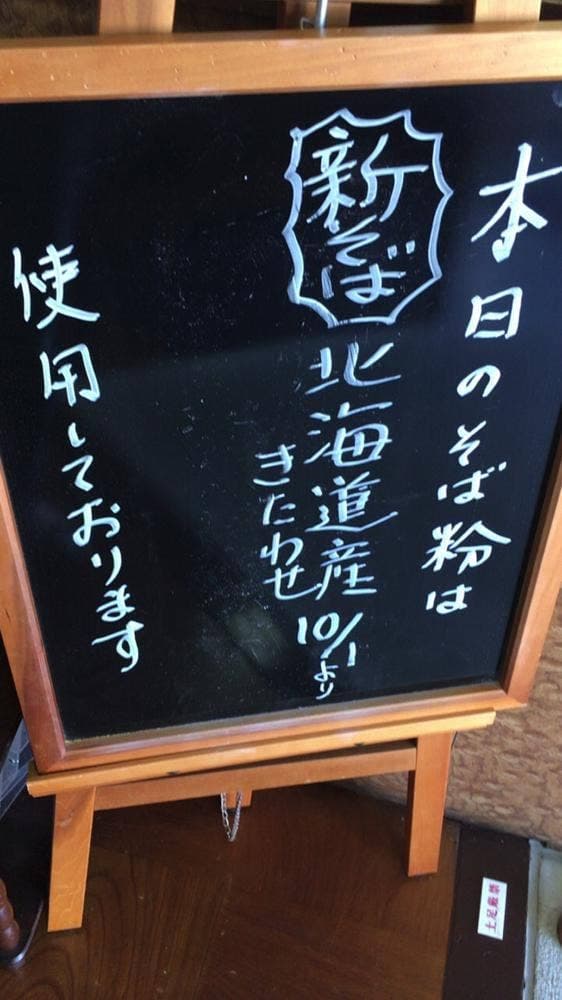 本日のそば粉は
新そば
北海道産
きたわせ
10/1より
使用しております
土足厳禁